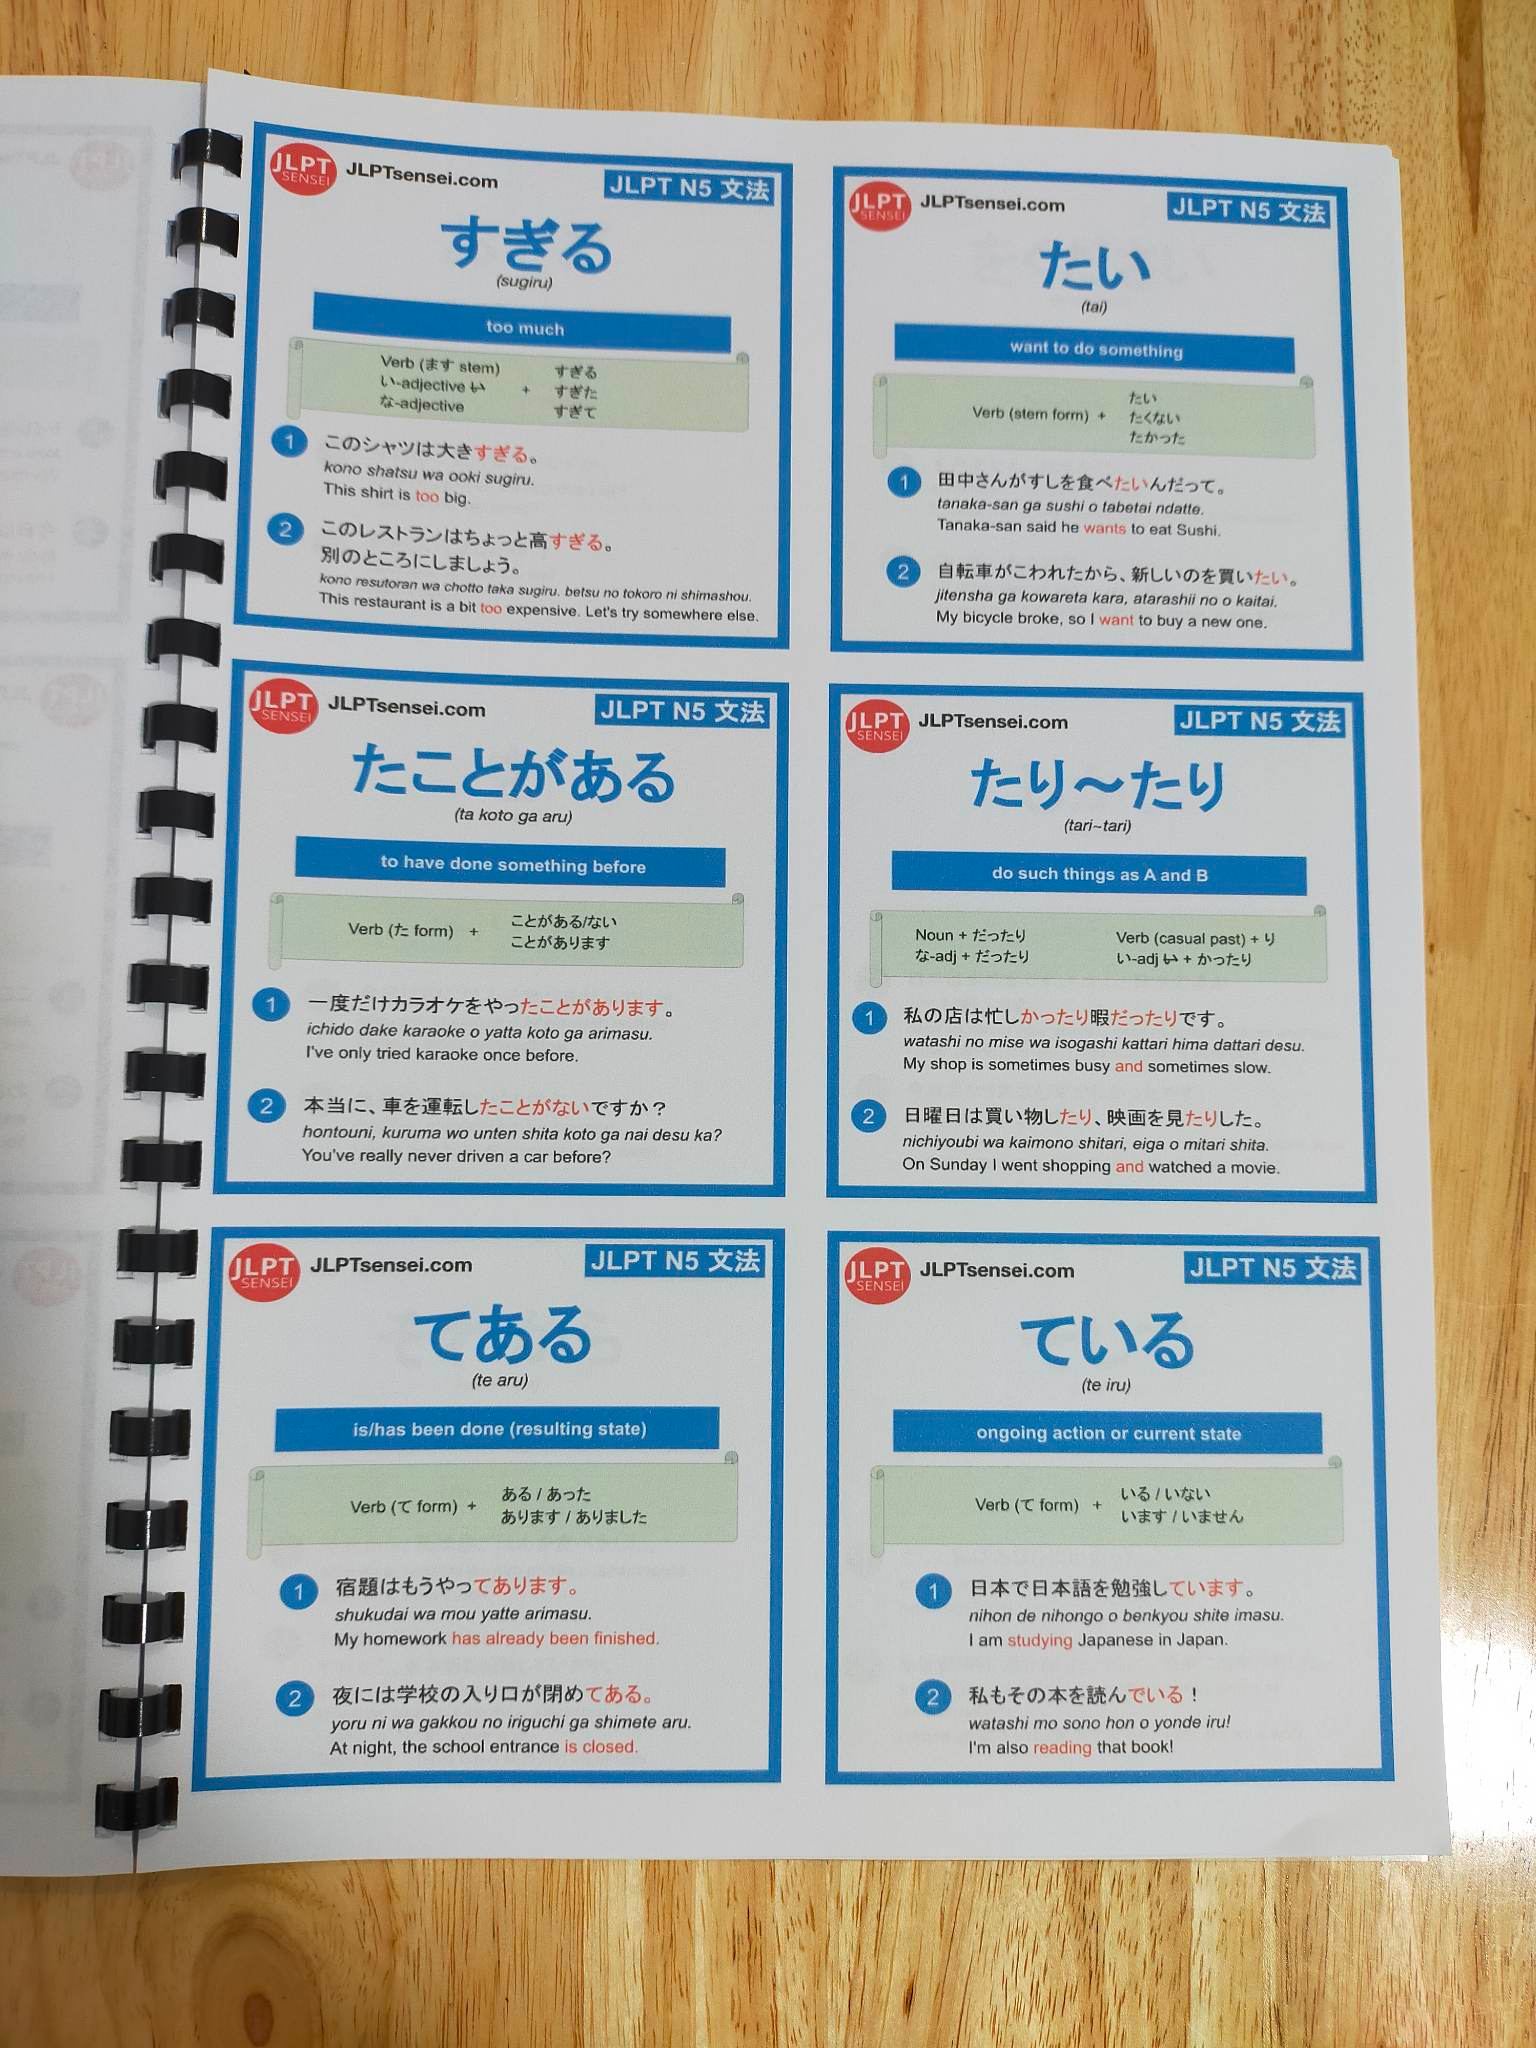 JLPT
SENSEI
JLPTsensei.com
JLPT N5 文法
すぎる
(sugiru)
too much
Verb (ます stem)
い-adjective い
な-adjective
+
すぎる
すぎた
すぎて
1
このシャツは大きすぎる。
kono shatsu wa ooki sugiru.
This shirt is too big.
2
このレストランはちょっと高すぎる。
別のところにしましょう。
kono resutoran wa chotto taka sugiru. betsu no tokoro ni shimashou.
This restaurant is a bit too expensive. Let's try somewhere else.
JLPT
SENSEI
JLPTsensei.com
JLPT N5 文法
たい
(tai)
want to do something
Verb (stem form) +
たい
たくない
たかった
1
田中さんがすしを食べたいんだって。
tanaka-san ga sushi o tabetai ndatte.
Tanaka-san said he wants to eat Sushi.
2
自転車がこわれたから、新しいのを買いたい。
jitensha ga kowareta kara, atarashii no o kaitai.
My bicycle broke, so I want to buy a new one.
JLPT
SENSEI
JLPTsensei.com
JLPT N5 文法
たことがある
(ta koto ga aru)
to have done something before
Verb (た form) +
ことがある/ない
ことがあります
1
一度だけカラオケをやったことがあります。
ichido dake karaoke o yatta koto ga arimasu.
I've only tried karaoke once before.
2
本当に、車を運転したことがないですか？
hontouni, kuruma wo unten shita koto ga nai desu ka?
You've really never driven a car before?
JLPT
SENSEI
JLPTsensei.com
JLPT N5 文法
たり～たり
(tari~tari)
do such things as A and B
Noun + だったり
な-adj + だったり
Verb (casual past) + り
い-adj い + かったり
1
私の店は忙しかったり暇だったりです。
watashi no mise wa isogashi kattari hima dattari desu.
My shop is sometimes busy and sometimes slow.
2
日曜日は買い物したり、映画を見たりした。
nichiyoubi wa kaimono shitari, eiga o mitari shita.
On Sunday I went shopping and watched a movie.
JLPT
SENSEI
JLPTsensei.com
JLPT N5 文法
てある
(te aru)
is/has been done (resulting state)
Verb (て form) +
ある / あった
あります / ありました
1
宿題はもうやってあります。
shukudai wa mou yatte arimasu.
My homework has already been finished.
2
夜には学校の入り口が閉めてある。
yoru ni wa gakkou no iriguchi ga shimete aru.
At night, the school entrance is closed.
JLPT
SENSEI
JLPTsensei.com
JLPT N5 文法
ている
(te iru)
ongoing action or current state
Verb (て form) +
いる / いない
います / いません
1
日本で日本語を勉強しています。
nihon de nihongo o benkyou shite imasu.
I am studying Japanese in Japan.
2
私もその本を読んでいる！
watashi mo sono hon o yonde iru!
I'm also reading that book!